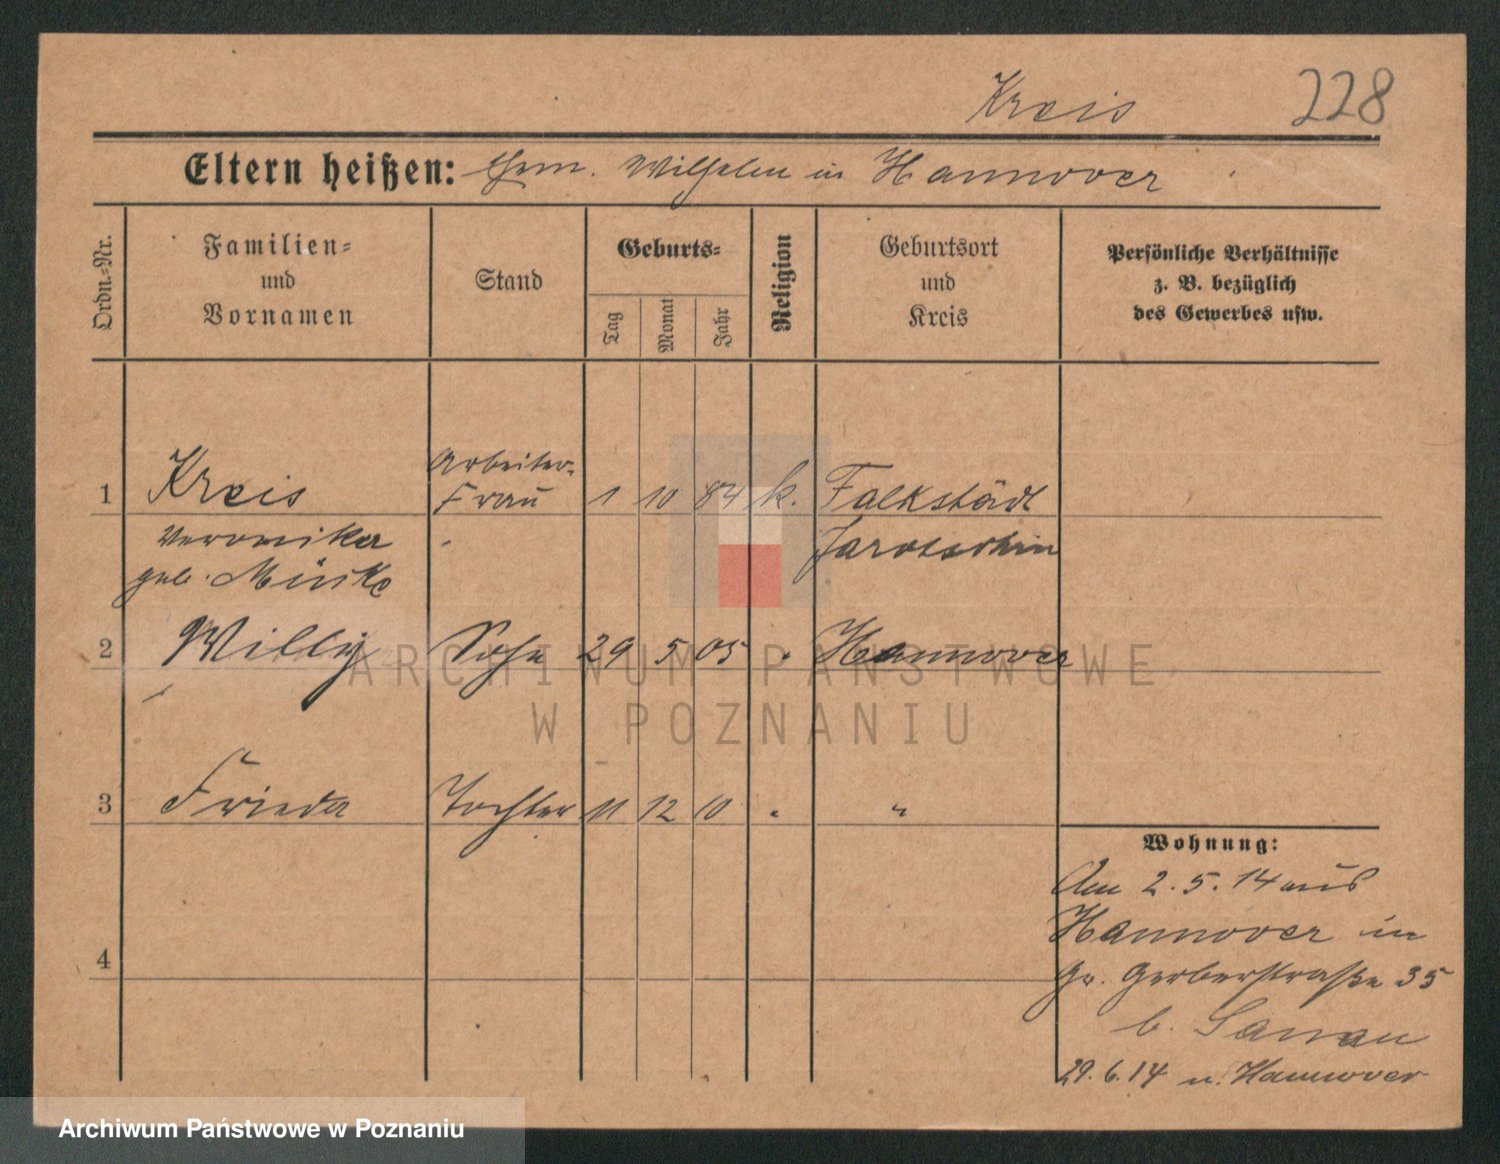 Kreis 228
Eltern heißen: Ehm. Wilhelm in Hannover
Ordn.=Nr.
Familien=
und
Vornamen
Stand
Geburts=
Tag
Monat
Jahr
Religion
Geburtsort
und
Kreis
Persönliche Verhältnisse
z. B. bezüglich
des Gewerbes usw.
Arbeiter-
1 Kreis Frau 1 10 84 k. Falkstädt
Veronika Jarotschin
geb.
2 Willy Sohn 29 5 05 " Hannover
3 Frieda Tochter 11 12 10 " "
4
Wohnung:
Am 2.5.14 aus
Hannover in
Gr. Gerberstraße 35
b.
29.6.14 n. Hannover
ARCHIWUM PAŃSTWOWE
W POZNANIU
Archiwum Państwowe w Poznaniu